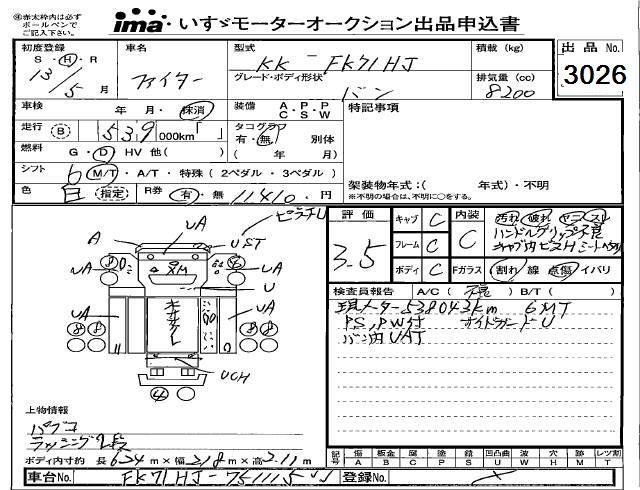 ※赤太枠内は必ず
ボールペンで
ご記入下さい。
ima いすゞモーターオークション出品申込書
初度登録 車名 型式 積載 (kg) 出品 No.
S・H・R
13/5 月 ファイター KK-FK71HJ 3026
グレード・ボディ形状 排気量 (cc)
バン 8200
車検 年・月・抹消 装備 A・P・P C・S・W 特記事項
走行 B 539 000km「 」 タコグラフ
有・無 別体
( 年・ 月)
燃料 G・D HV 他( )
シフト 6 M/T・A/T・特殊(2ペダル・3ペダル)
架装物年式:( 年式)・不明
※不明の場合は、不明に○をする。
色 白 指定 R券 有・無 11410.円
評価 キャブ C 内装 汚れ 破れ ヤニ・スレ
3.5 フレーム C C ハンドルグリップ不良
ボディ C Fガラス 割れ 線 点傷 イバリ
検査員報告 A/C( ) B/T( )
現メーター538043km 6MT
PS,PW付 サイドガードU
バン内UAT
A UA UST
UA UA
U
UA UA
8 8 8 8
UCH
4
上物情報
パブコ
ラッシング2段
ボディ内寸約 長 624 m×幅 218 m×高 2.11 m
記号 傷 板金 腐 塗 錆 凹凸曲 波 穴 跡 レツ割
A B C P S U W H M T
車台No. FK71HJ-751115 登録No.